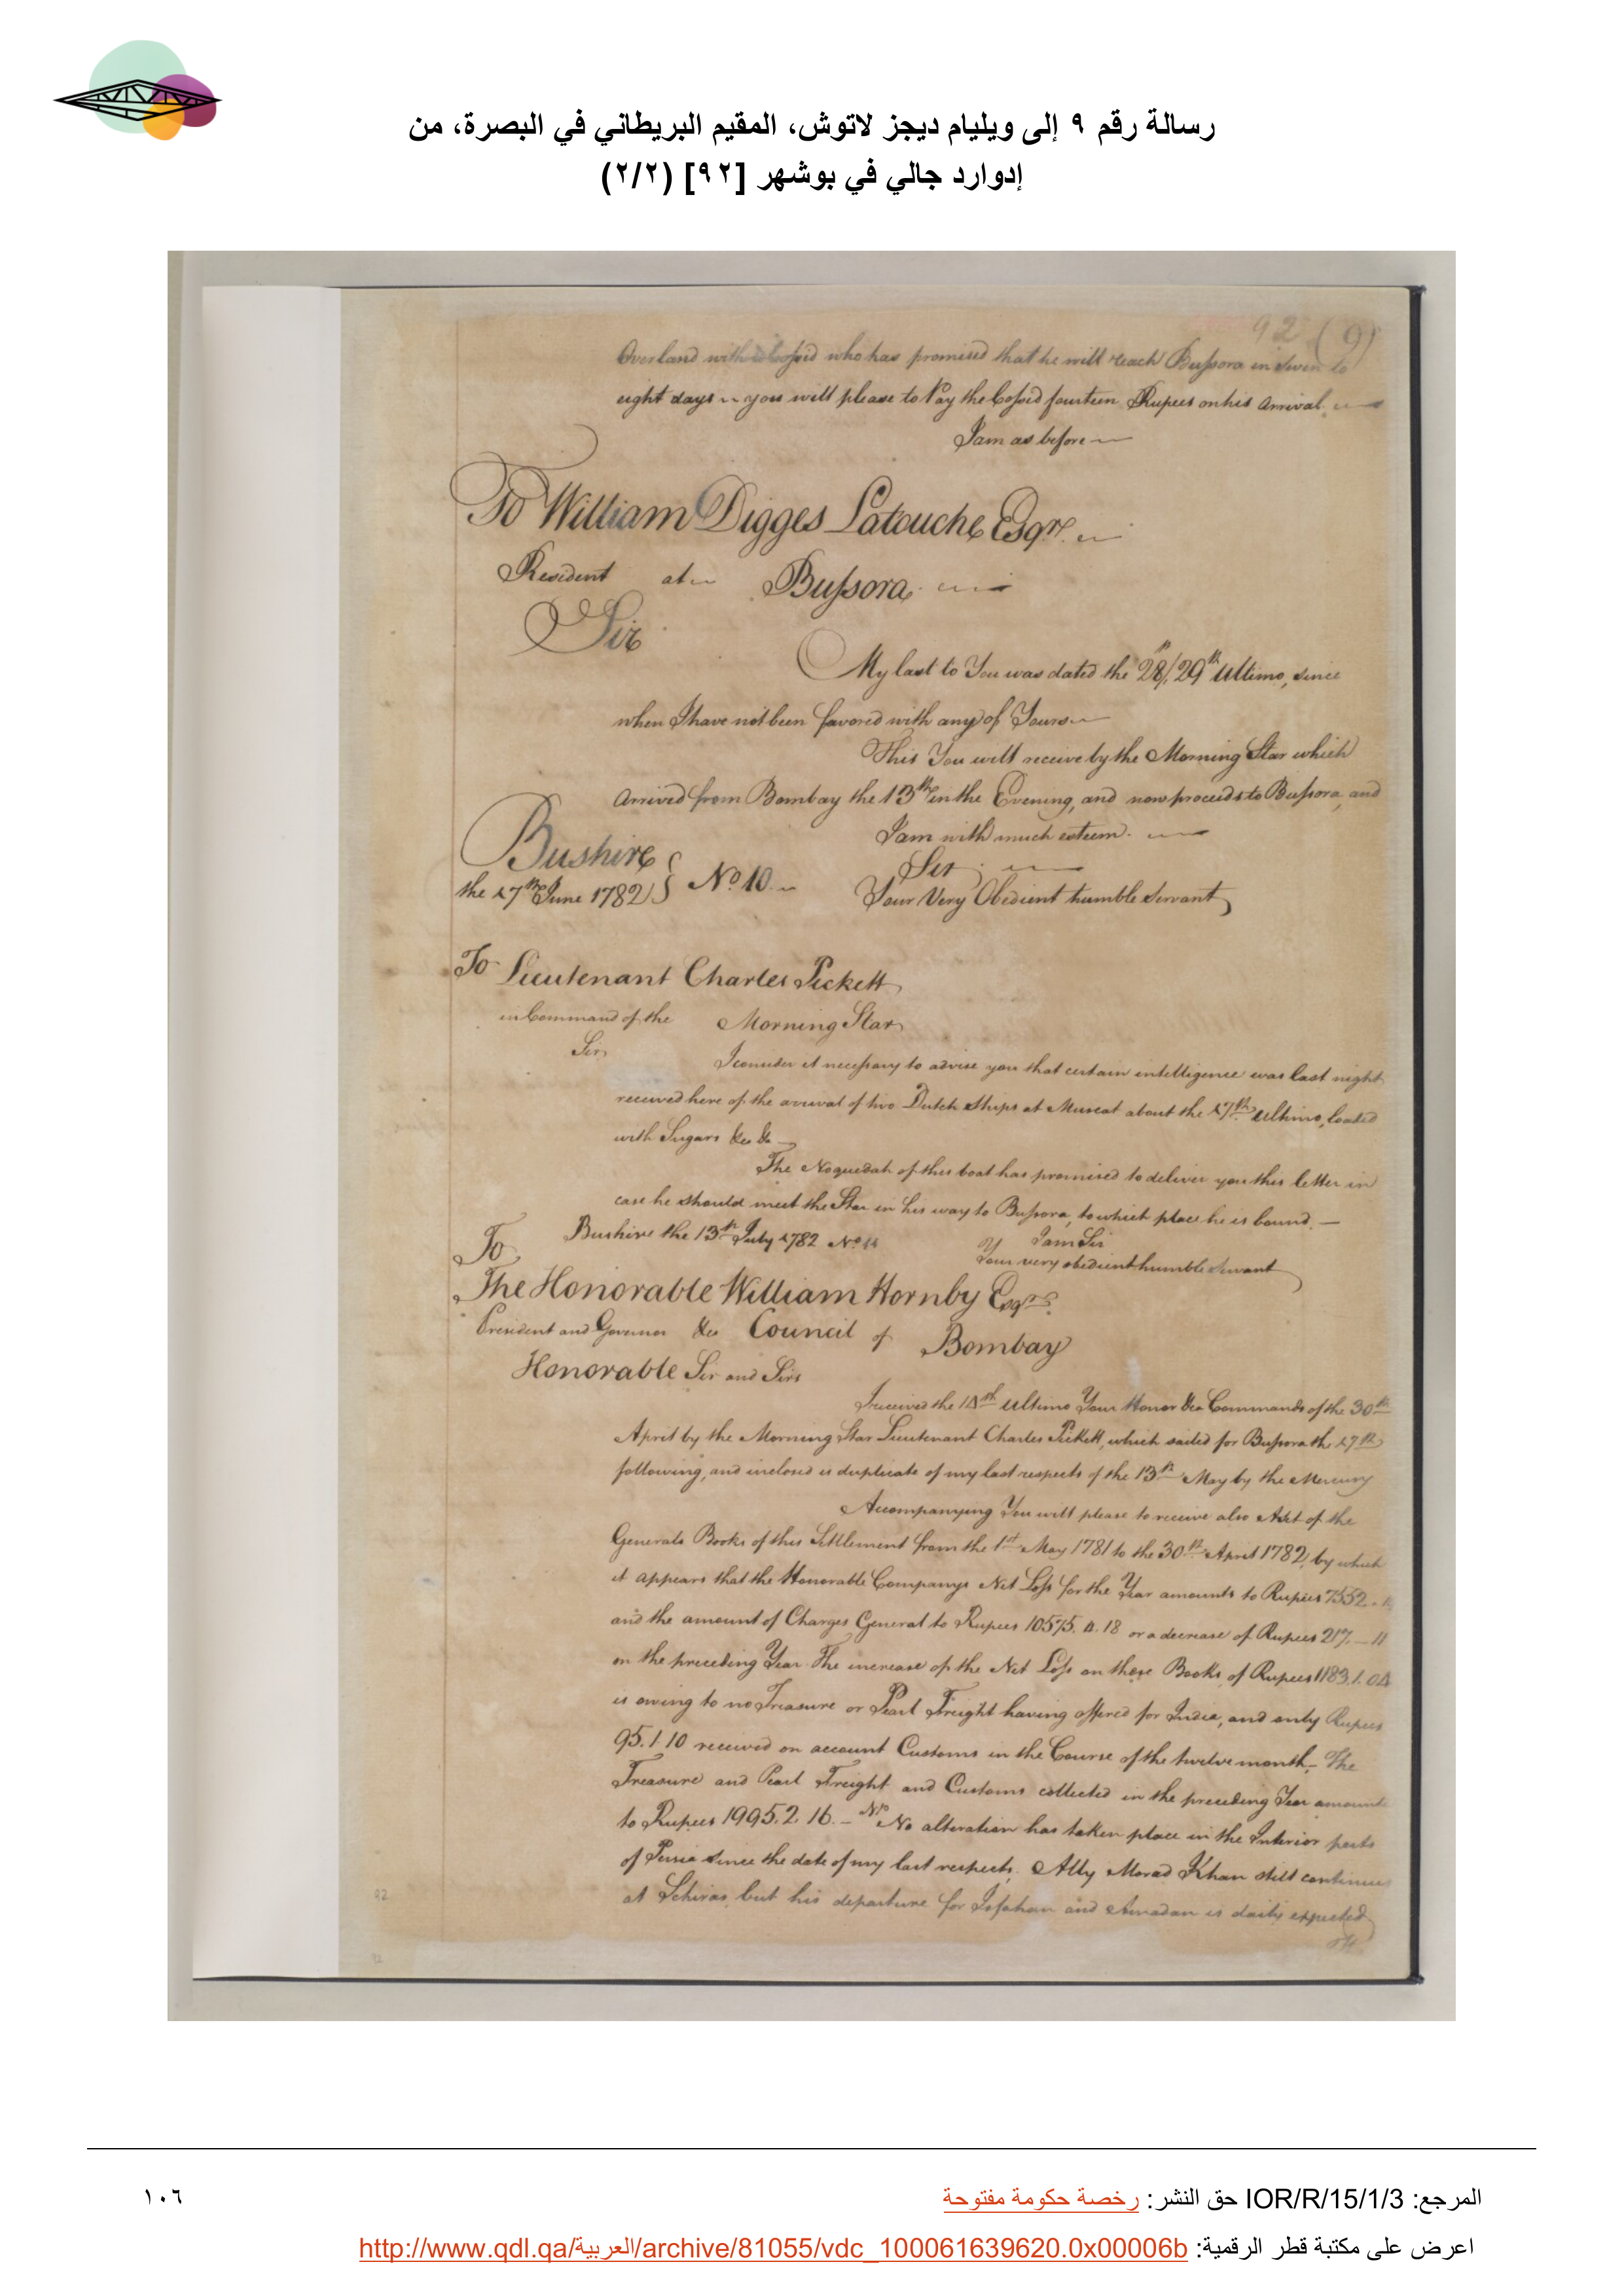 رسالة رقم ٩ إلى ويليام ديجز لاتوش، المقيم البريطاني في البصرة، من
إدوارد جالي في بوشهر [٩٢] (٢/٢)
92 (9)
Overland with a Cossid who has promised that he will reach Bussora in seven to
eight days you will please to Pay the Cossid fourteen Rupees on his Arrival.
I am as before
To William Digges Latouche Esqre.
Resident at Bussora
Sir
My last to You was dated the 28/29th Ultimo, since
when I have not been favored with any of Yours
This You will receive by the Morning Star which
Arrived from Bombay the 13th in the Evening, and now proceeds to Bussora, and
I am with much esteem.
Bushire
Sir
the 17th June 1782 No 10
Your Very Obedient humble Servant
To Lieutenant Charles Pickett
in Command of the Morning Star
Sir
I consider it necessary to advise you that certain intelligence was last night
received here of the arrival of two Dutch Ships at Muscat about the 17th Ultimo, loaded
with Sugars &ca &a
The Noquedah of this boat has promised to deliver you this letter in
case he should meet the Star in his way to Bussora, to which place he is bound.
Bushire the 13th July 1782 No 11
I am Sir
Your very obedient humble Servant
To
The Honorable William Hornby Esqre.
President and Governor &ca Council of Bombay
Honorable Sir and Sirs
I received the 14th Ultimo Your Honor &ca Commands of the 30th
April by the Morning Star Lieutenant Charles Pickett, which sailed for Bussora the 17th
following, and inclosed is duplicate of my last respects of the 13th May by the Mercury
Accompanying You will please to receive also A Set of the
Generals Books of this Settlement from the 1st May 1781 to the 30th April 1782, by which
it appears that the Honorable Companys Net Loss for the Year amounts to Rupees 7552
and the amount of Charges General to Rupees 10575. 4. 18 or a decrease of Rupees 217. — 11
on the preceding Year. The increase of the Net Loss on these Books, of Rupees 1183. 1. 04
is owing to no Treasure or Pearl Freight having offered for India, and only Rupees
95. 1. 10 received on account Customs in the Course of the twelve month. The
Treasure and Pearl Freight and Customs collected in the preceding Year amounts
to Rupees 1995. 2. 16. — No alteration has taken place in the Interior parts
of Persia since the date of my last respects; Ally Morad Khan still continues
at Schiras, but his departure for Isfahan and Amadan is daily expected
92
92
المرجع: IOR/R/15/1/3 حق النشر: رخصة حكومة مفتوحة
١٠٦
اعرض على مكتبة قطر الرقمية: http://www.qdl.qa/العربية/archive/81055/vdc_100061639620.0x00006b